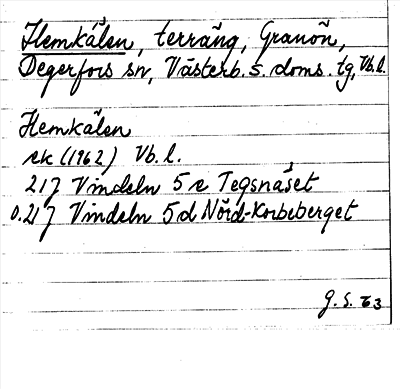 Hemkålen, terräng, Granön,
Degerfors sn, Västerb. s. doms. tg, Vb.l.
Hemkålen
ek (1962) Vb. l.
21 J Vindeln 5 e Tegsnäset
o. 21 J Vindeln 5 d Nörd-Korbeberget
G. S. 63